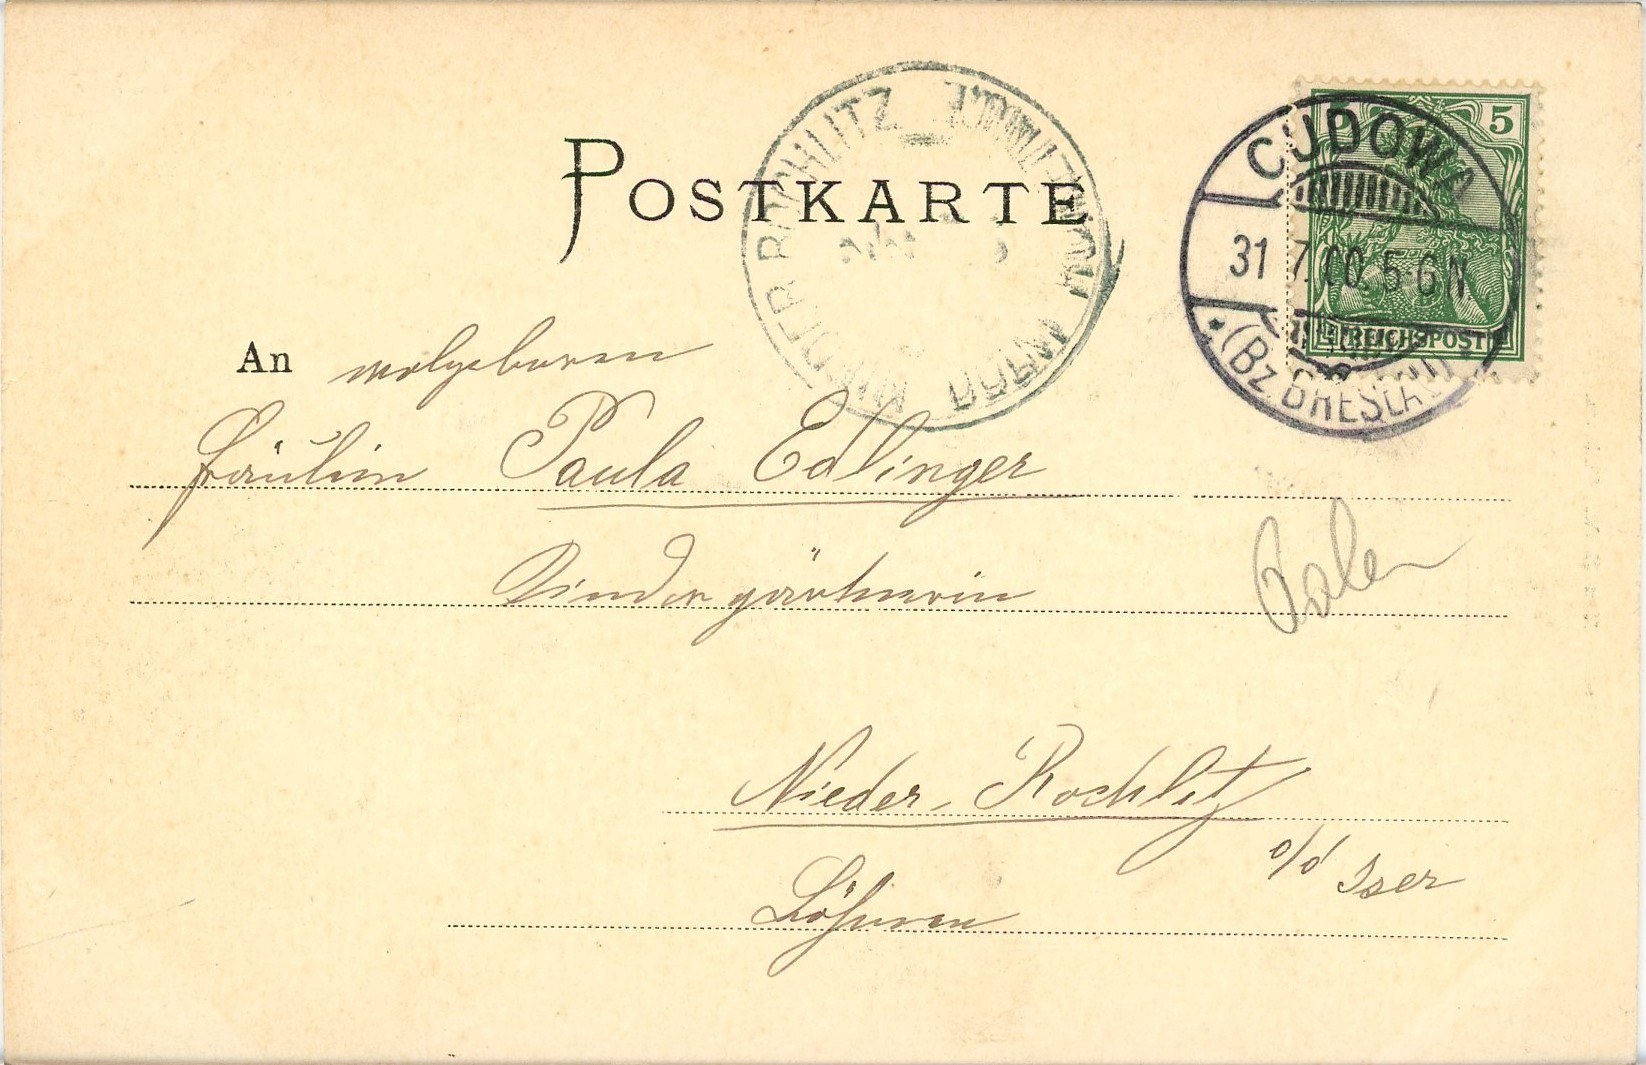 POSTKARTE
5
CUDOWA
31 7.00.5-6N
*(Bz. BRESLAU)*
REICHSPOST
ROCHLITZ
An wolgeboren
Fräulein Paula Edlinger
Kindergärtnerin
Nieder-Rochlitz
a/d Iser
Böhmen